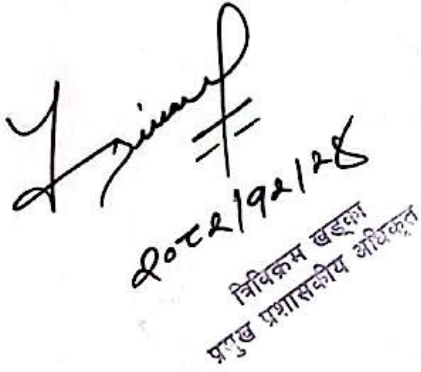 २०८२।१२।२४
त्रिविक्रम खड्का
प्रमुख प्रशासकीय अधिकृत